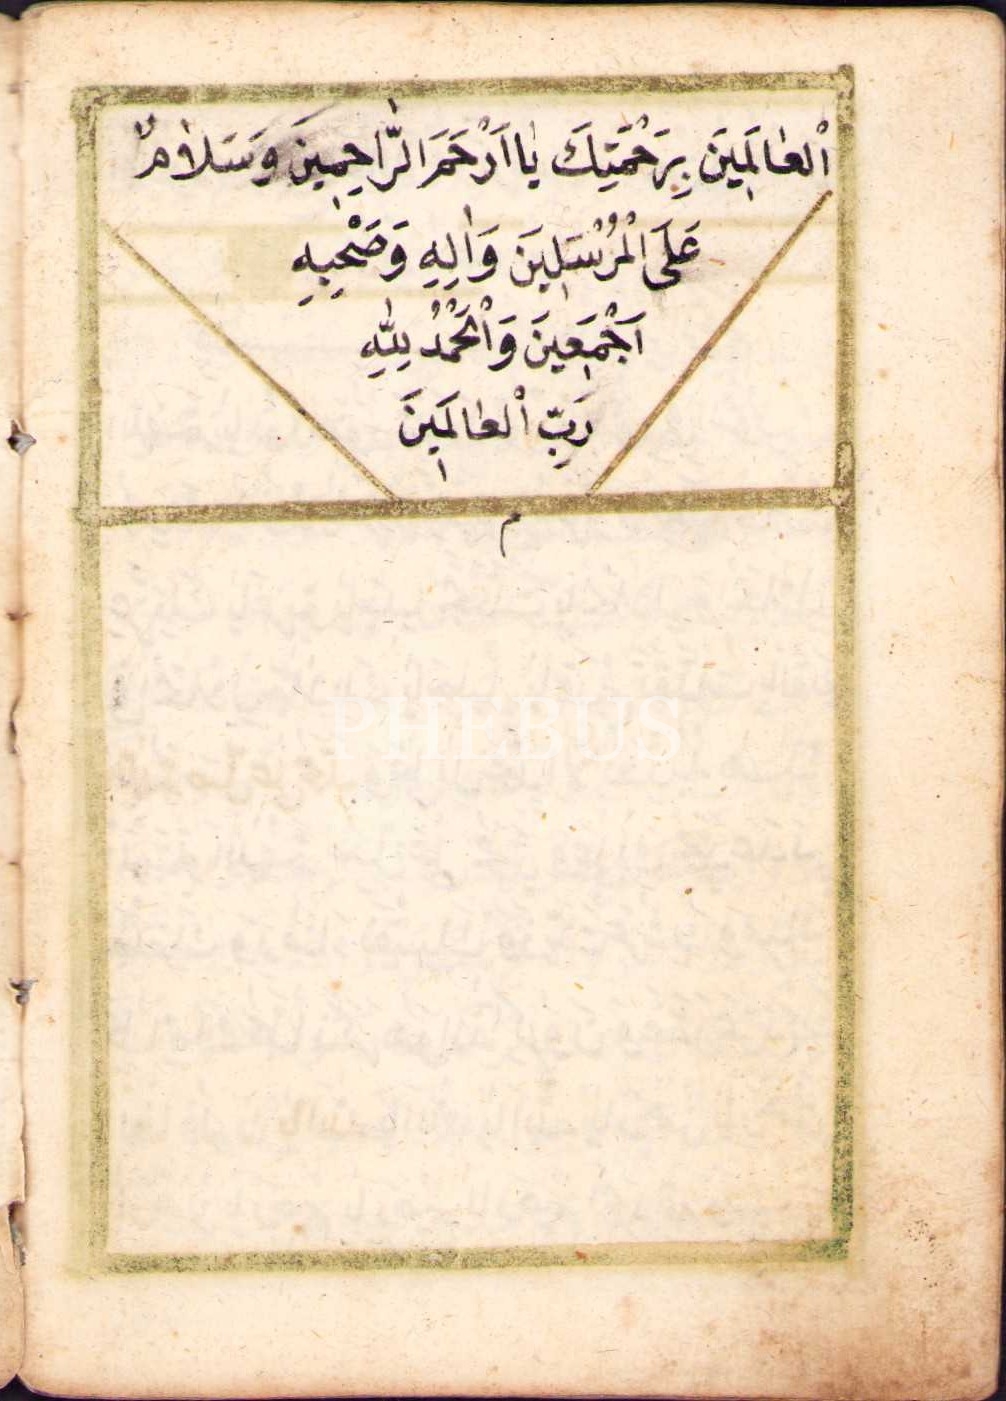 الْعٰالَمِينَ بِرَحْمَتِكَ يٰا اَرْحَمَ الرّٰاحِمِينَ وَسَلٰامٌ
عَلَى الْمُرْسَلِينَ وَاٰلِهِ وَصَحْبِهِ
اَجْمَعِينَ وَالْحَمْدُ لِلّٰهِ
رَبِّ الْعٰالَمِينَ
م
PHEBUS